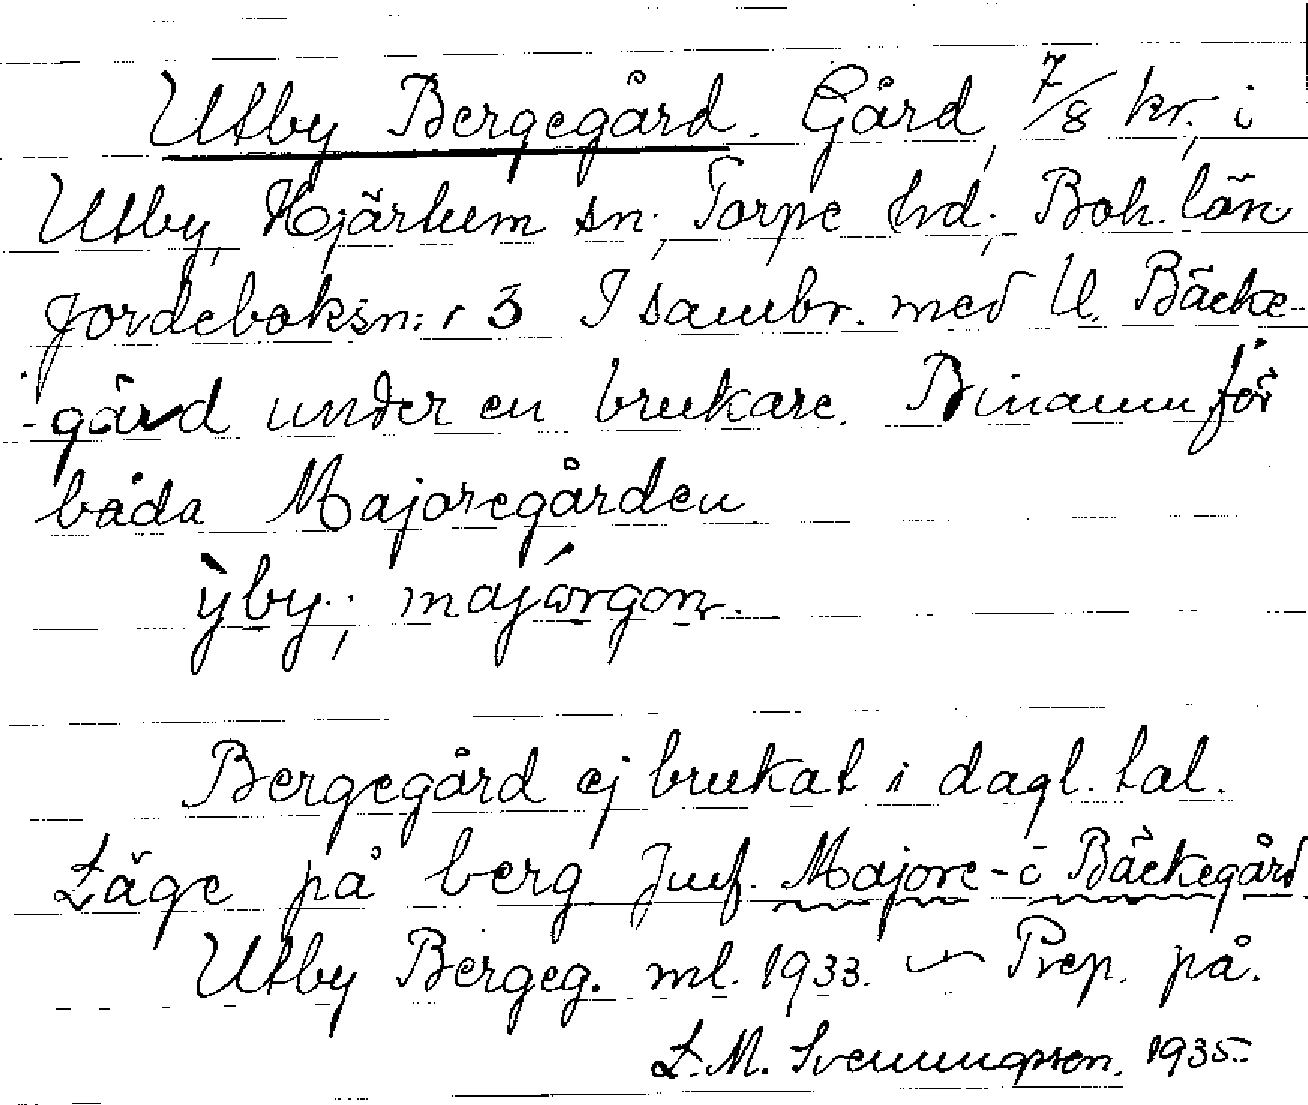 Utby Bergegård. Gård, 7/8 kr. i
Utby, Hjärtum sn, Torpe hd, Boh. län
Jordeboksn:r 3 I sambr. med U. Bäcke-
gård under en brukare. Binamn för
båda Majoregården
ỳby.; majórgon.
Bergegård ej brukat i dagl. tal.
Läge på berg Jmf. Majore- i Bäckegård
Utby Bergeg. ml. 1933. – Prep. på.
L.M. Svenungsson. 1935.